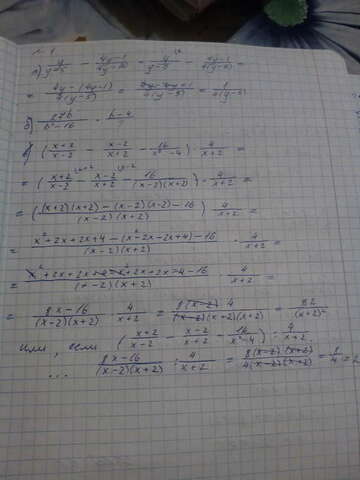 а) y/(y-5) - (4y-1)/(4y-20) = y/(y-5) - (4y-1)/(4(y-5)) =
= (4y-(4y-1))/(4(y-5)) = (4y-4y+1)/(4(y-5)) = 1/(4(y-5))
б)
в) ((x+2)/(x-2) - (x-2)/(x+2) - 16/(x²-4)) · 4/(x+2) =
= ((x+2)/(x-2) - (x-2)/(x+2) - 16/((x-2)(x+2))) · 4/(x+2) =
= ((x+2)(x+2) - (x-2)(x-2) - 16)/((x-2)(x+2)) · 4/(x+2) =
= (x²+2x+2x+4-(x²-2x-2x+4)-16)/((x-2)(x+2)) · 4/(x+2) =
= (x²+2x+2x+4-x²+2x+2x-4-16)/((x-2)(x+2)) · 4/(x+2) =
= (8x-16)/((x-2)(x+2)) · 4/(x+2) = (8(x-2)·4)/((x-2)(x+2)(x+2)) = 32/(x+2)²
или, если ((x+2)/(x-2) - (x-2)/(x+2) - 16/(x²-4)) : 4/(x+2)
... (8x-16)/((x-2)(x+2)) : 4/(x+2) = (8(x-2)(x+2))/(4(x-2)(x+2)) = 8/4 = 2